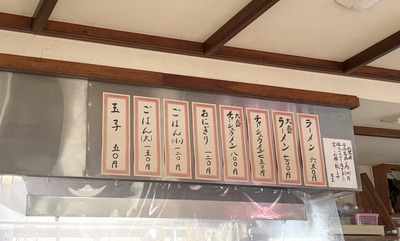 ラーメン 六五〇円
大盛 ラーメン 七〇〇円
チャーシュウメン 七五〇円
大盛 チャーシュウメン 八〇〇円
おにぎり 一二〇円
ごはん(小) 一二〇円
ごはん(大) 一五〇円
玉子 五〇円